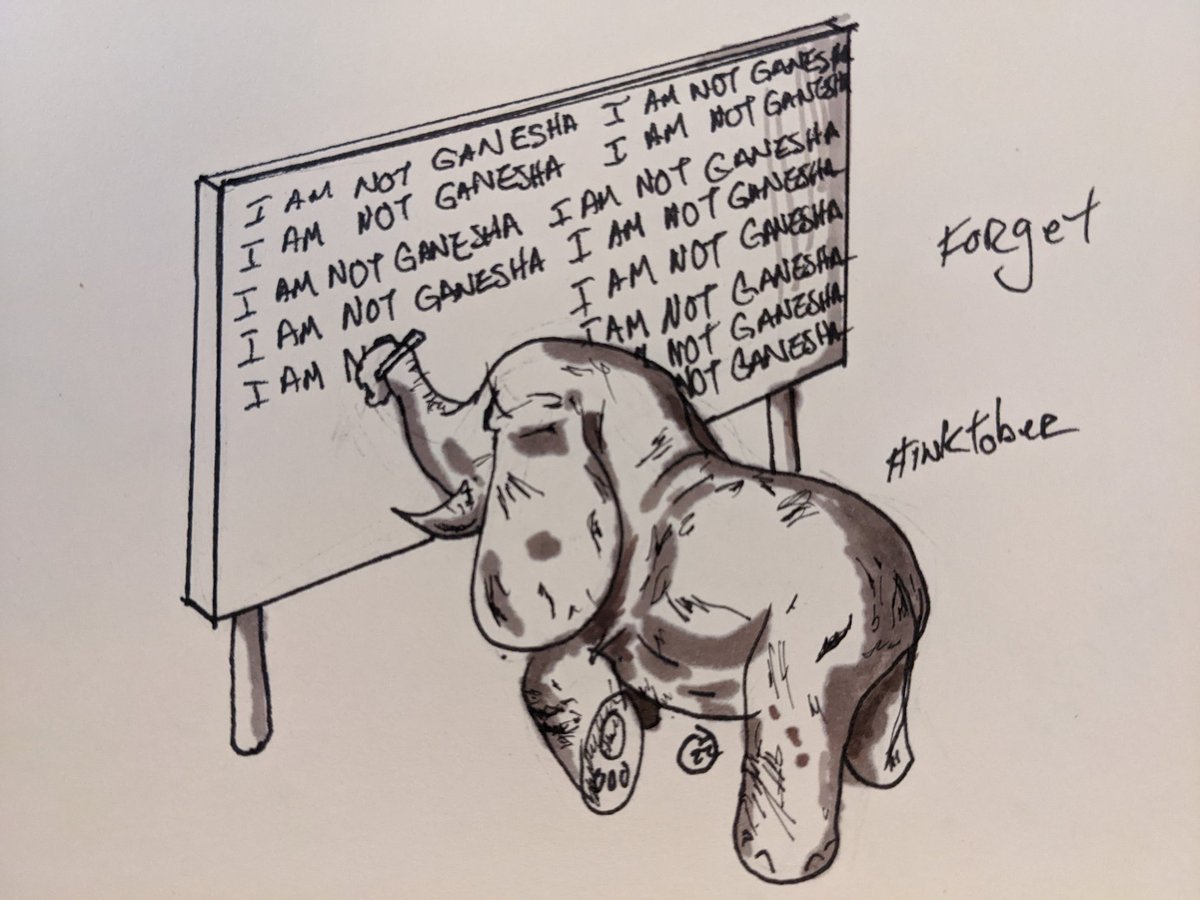 I AM NOT GANESHA I AM NOT GANESHA
I AM NOT GANESHA I AM NOT GANESHA
I AM NOT GANESHA I AM NOT GANESHA
I AM NOT GANESHA I AM NOT GANESHA
I AM N I AM NOT GANESHA
I AM NOT GANESHA
NOT GANESHA
NOT GANESHA
Forget
#inktober
22